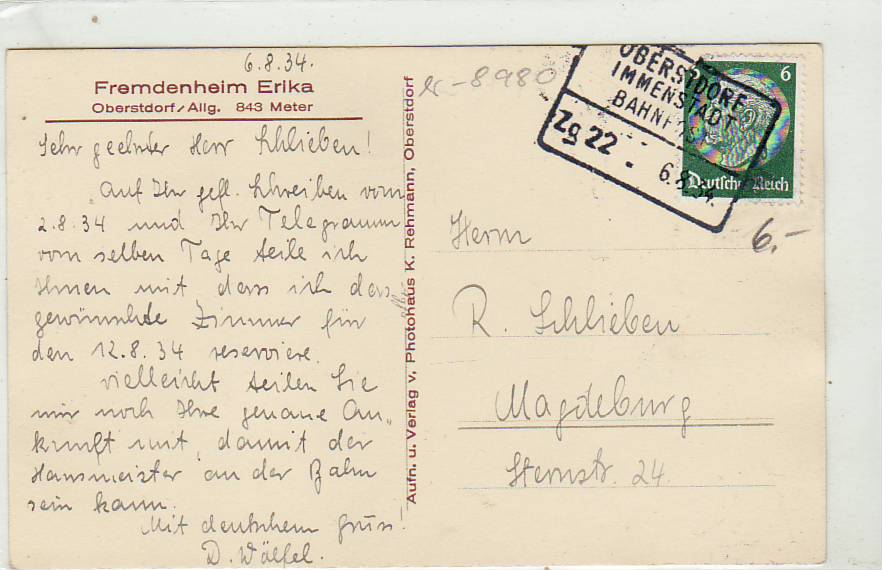 6.8.34.
Fremdenheim Erika
Oberstdorf/Allg. 843 Meter
Sehr geehrter Herr Schlieben!
Auf Ihr gefl. Schreiben vom
2.8.34 und Ihr Telegramm
vom selben Tage teile ich
Ihnen mit dass ich das
gewünschte Zimmer für
den 12.8.34 reserviere.
Vielleicht teilen Sie
mir noch Ihre genaue An„
kunft mit, damit der
Hausmeister an der Bahn
sein kann.
Mit deutschem Gruss!
D. Wölfel.
Aufn. u. Verlag v. Photohaus K. Rehmann, Oberstdorf
8980
OBERSTDORF
IMMENSTADT
BAHNPOST
Zg 22
6.8.34.
6
Deutsches Reich
6.-
Herrn
R. Schlieben
Magdeburg
Sternstr. 24